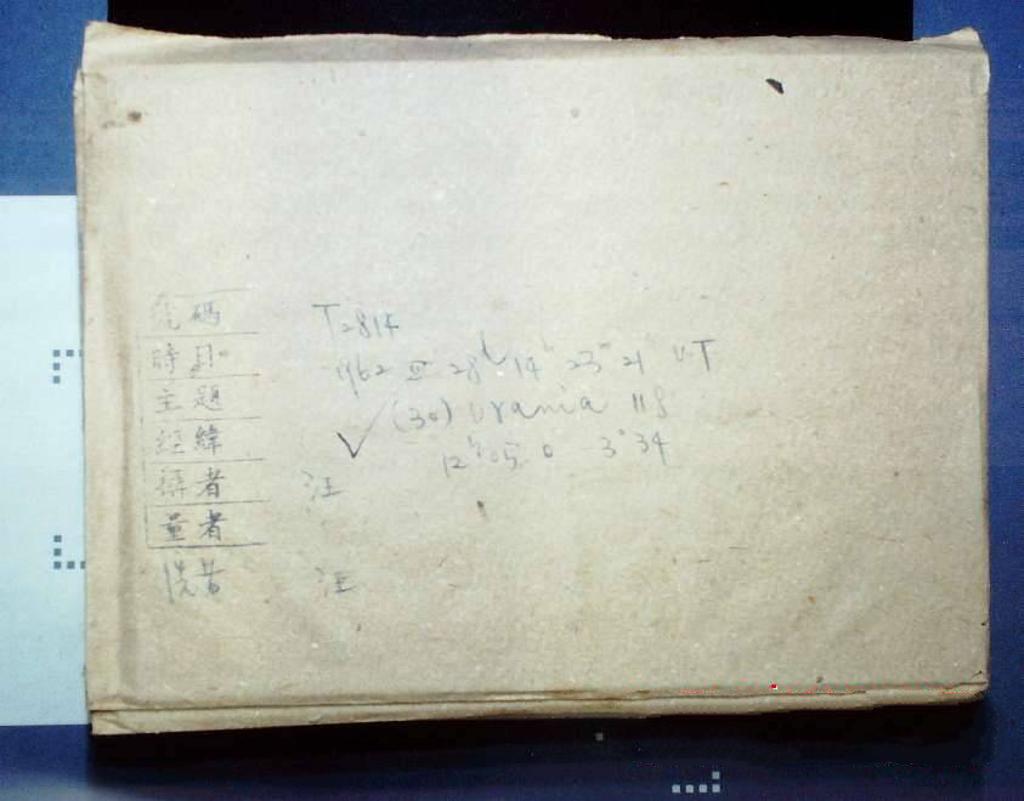 号碼 T2814
時日 1962 III 28ᵈ 14ʰ 23ᵐ 21ˢ U.T
主題 ✓ (30) Urania 118
經緯 12ʰ05.0 3°34
攝者 汪
量者
洗者 汪